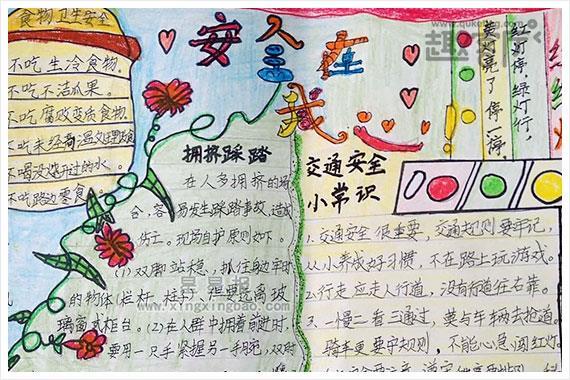 食物卫生安全
不吃生冷食物。
不吃不洁瓜果。
不吃腐败变质食物
不吃未经高温处理的食
不喝没烧开过的水。
不吃路边零食
安全在我心
红灯停,绿灯行,
黄灯亮了停一停。
拥挤踩踏
在人多拥挤的场
合,容易发生踩踏事故,造成
伤亡。现场自护原则如下。
(1)双脚站稳,抓住身边牢
的物体(栏杆、柱子),但要远离玻
璃窗或柜台。(2)在人群中拥着前进时,
要用一只手紧握另一手腕,双肘
交通安全
小常识
1.交通安全很重要,交通规则要牢记,
从小养成好习惯,不在路上玩游戏。
2.行走应走人行道,没有行道往右靠。
3.一慢二看三通过,莫与车辆去抢道。
骑车更要守规则,不能心急闯红灯。
趣
www.qukongbao.com
星星报
www.xingxingbao.com